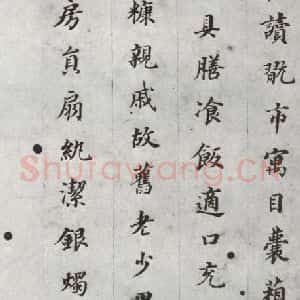 讀翫市寓目囊箱
具膳飡飯適口充
糠親戚故舊老少異
房員扇紈潔銀燭
Shufawang.Cn